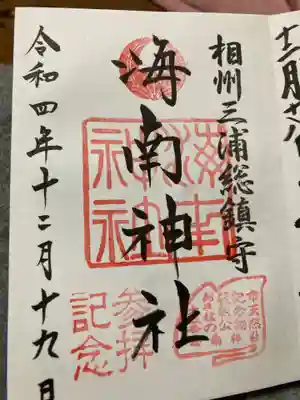 相州三浦総鎮守
海南神社
海南神社
参拝
記念
令和四年十二月十九日